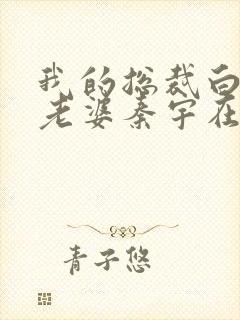 我的总裁白
老婆秦宇在
青子悠